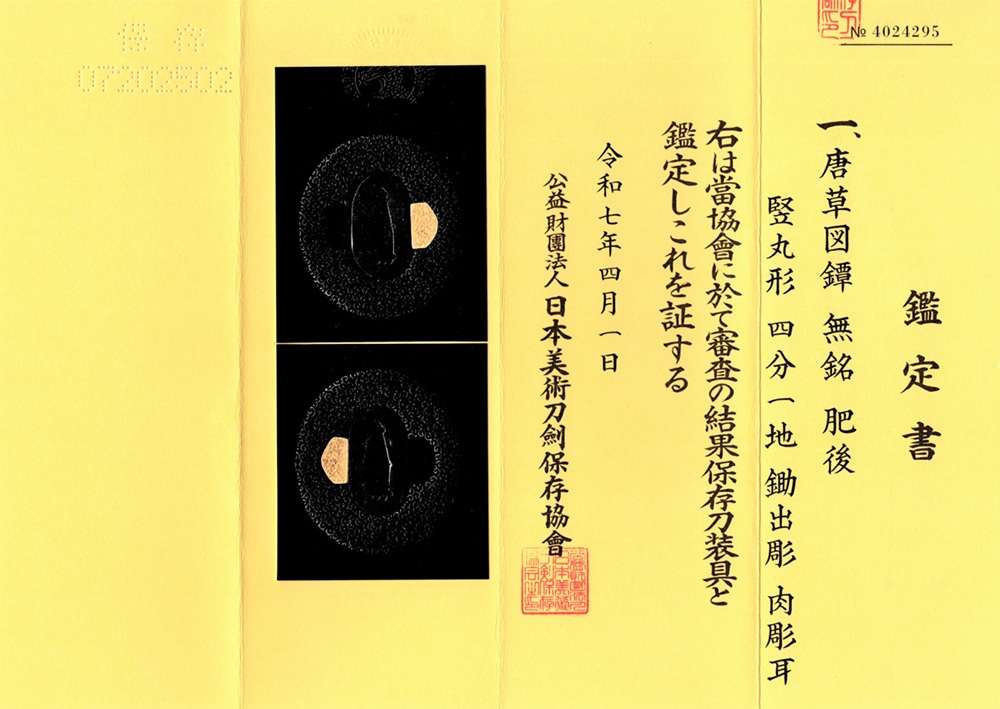 № 4024295
鑑定書
一、唐草図鐔 無銘 肥後
竪丸形 四分一地 鋤出彫 肉彫耳
右は當協會に於て審査の結果保存刀装具と
鑑定しこれを証する
令和七年四月一日
公益財團法人 日本美術刀劍保存協會
保存
07202502